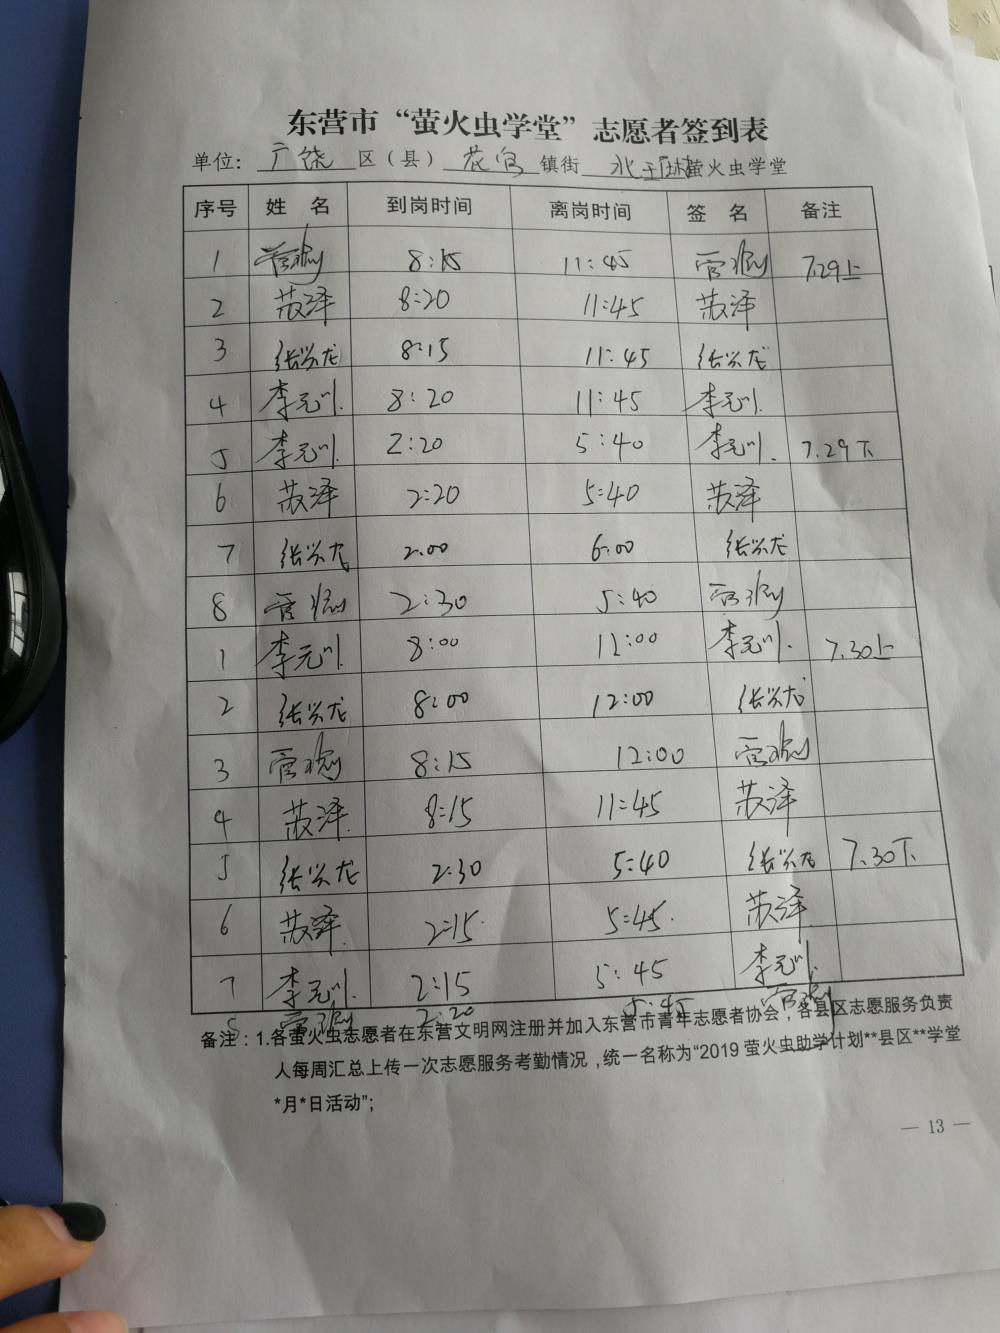 东营市“萤火虫学堂”志愿者签到表
单位: 广饶 区（县） 花官 镇街 萤火虫学堂
序号 姓 名 到岗时间 离岗时间 签 名 备注
1 8:15 11:45 7.29上
2 苏泽 8:20 11:45 苏泽
3 张兴龙 8:15 11:45 张兴龙
4 李元川. 8:20 11:45 李元川.
5 李元川. 2:20 5:40 李元川. 7.29下
6 苏泽 2:20 5:40 苏泽
7 张兴龙 2:00 6:00 张兴龙
8 2:30 5:40
1 李元川. 8:00 12:00 李元川. 7.30上
2 张兴龙 8:00 12:00 张兴龙
3 8:15 12:00
4 苏泽. 8:15 11:45 苏泽
5 张兴龙 2:30 5:40 张兴龙 7.30下.
6 苏泽. 2:15. 5:45. 苏泽
7 李元川. 2:15 5:45 李元川.
8 2:20 5:45
备注：1.各萤火虫志愿者在东营文明网注册并加入东营市青年志愿者协会，各县区志愿服务负责
人每周汇总上传一次志愿服务考勤情况，统一名称为“2019萤火虫助学计划**县区**学堂
*月*日活动”;
— 13 —